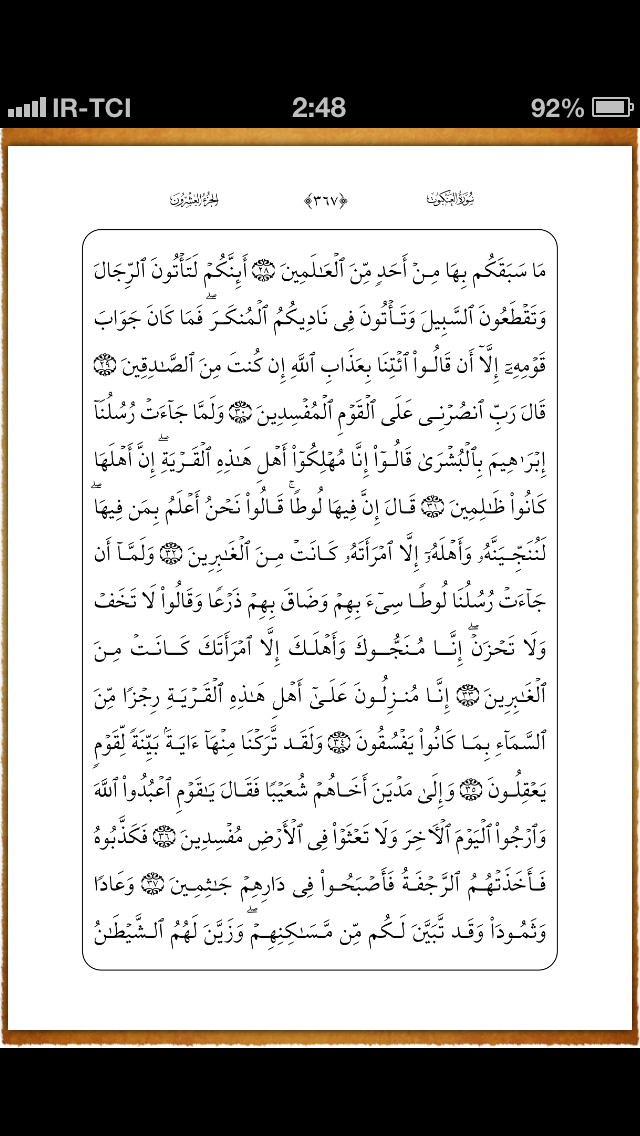 IR-TCI 2:48 92%
سُورَةُ العَنكَبُوت ﴿٣٦٧﴾ الجُزءُ العِشرُون
مَا سَبَقَكُم بِهَا مِنۡ أَحَدٖ مِّنَ ٱلۡعَٰلَمِينَ ٢٨ أَئِنَّكُمۡ لَتَأۡتُونَ ٱلرِّجَالَ
وَتَقۡطَعُونَ ٱلسَّبِيلَ وَتَأۡتُونَ فِي نَادِيكُمُ ٱلۡمُنكَرَۖ فَمَا كَانَ جَوَابَ
قَوۡمِهِۦٓ إِلَّآ أَن قَالُواْ ٱئۡتِنَا بِعَذَابِ ٱللَّهِ إِن كُنتَ مِنَ ٱلصَّٰدِقِينَ ٢٩
قَالَ رَبِّ ٱنصُرۡنِي عَلَى ٱلۡقَوۡمِ ٱلۡمُفۡسِدِينَ ٣٠ وَلَمَّا جَآءَتۡ رُسُلُنَآ
إِبۡرَٰهِيمَ بِٱلۡبُشۡرَىٰ قَالُوٓاْ إِنَّا مُهۡلِكُوٓاْ أَهۡلِ هَٰذِهِ ٱلۡقَرۡيَةِۖ إِنَّ أَهۡلَهَا
كَانُواْ ظَٰلِمِينَ ٣١ قَالَ إِنَّ فِيهَا لُوطٗاۚ قَالُواْ نَحۡنُ أَعۡلَمُ بِمَن فِيهَاۖ
لَنُنَجِّيَنَّهُۥ وَأَهۡلَهُۥٓ إِلَّا ٱمۡرَأَتَهُۥ كَانَتۡ مِنَ ٱلۡغَٰبِرِينَ ٣٢ وَلَمَّآ أَن
جَآءَتۡ رُسُلُنَا لُوطٗا سِيٓءَ بِهِمۡ وَضَاقَ بِهِمۡ ذَرۡعٗا وَقَالُواْ لَا تَخَفۡ
وَلَا تَحۡزَنۡۖ إِنَّا مُنَجُّوكَ وَأَهۡلَكَ إِلَّا ٱمۡرَأَتَكَ كَانَتۡ مِنَ
ٱلۡغَٰبِرِينَ ٣٣ إِنَّا مُنزِلُونَ عَلَىٰٓ أَهۡلِ هَٰذِهِ ٱلۡقَرۡيَةِ رِجۡزٗا مِّنَ
ٱلسَّمَآءِ بِمَا كَانُواْ يَفۡسُقُونَ ٣٤ وَلَقَد تَّرَكۡنَا مِنۡهَآ ءَايَةَۢ بَيِّنَةٗ لِّقَوۡمٖ
يَعۡقِلُونَ ٣٥ وَإِلَىٰ مَدۡيَنَ أَخَاهُمۡ شُعَيۡبٗا فَقَالَ يَٰقَوۡمِ ٱعۡبُدُواْ ٱللَّهَ
وَٱرۡجُواْ ٱلۡيَوۡمَ ٱلۡأٓخِرَ وَلَا تَعۡثَوۡاْ فِي ٱلۡأَرۡضِ مُفۡسِدِينَ ٣٦ فَكَذَّبُوهُ
فَأَخَذَتۡهُمُ ٱلرَّجۡفَةُ فَأَصۡبَحُواْ فِي دَارِهِمۡ جَٰثِمِينَ ٣٧ وَعَادٗا
وَثَمُودَاْ وَقَد تَّبَيَّنَ لَكُم مِّن مَّسَٰكِنِهِمۡۖ وَزَيَّنَ لَهُمُ ٱلشَّيۡطَٰنُ